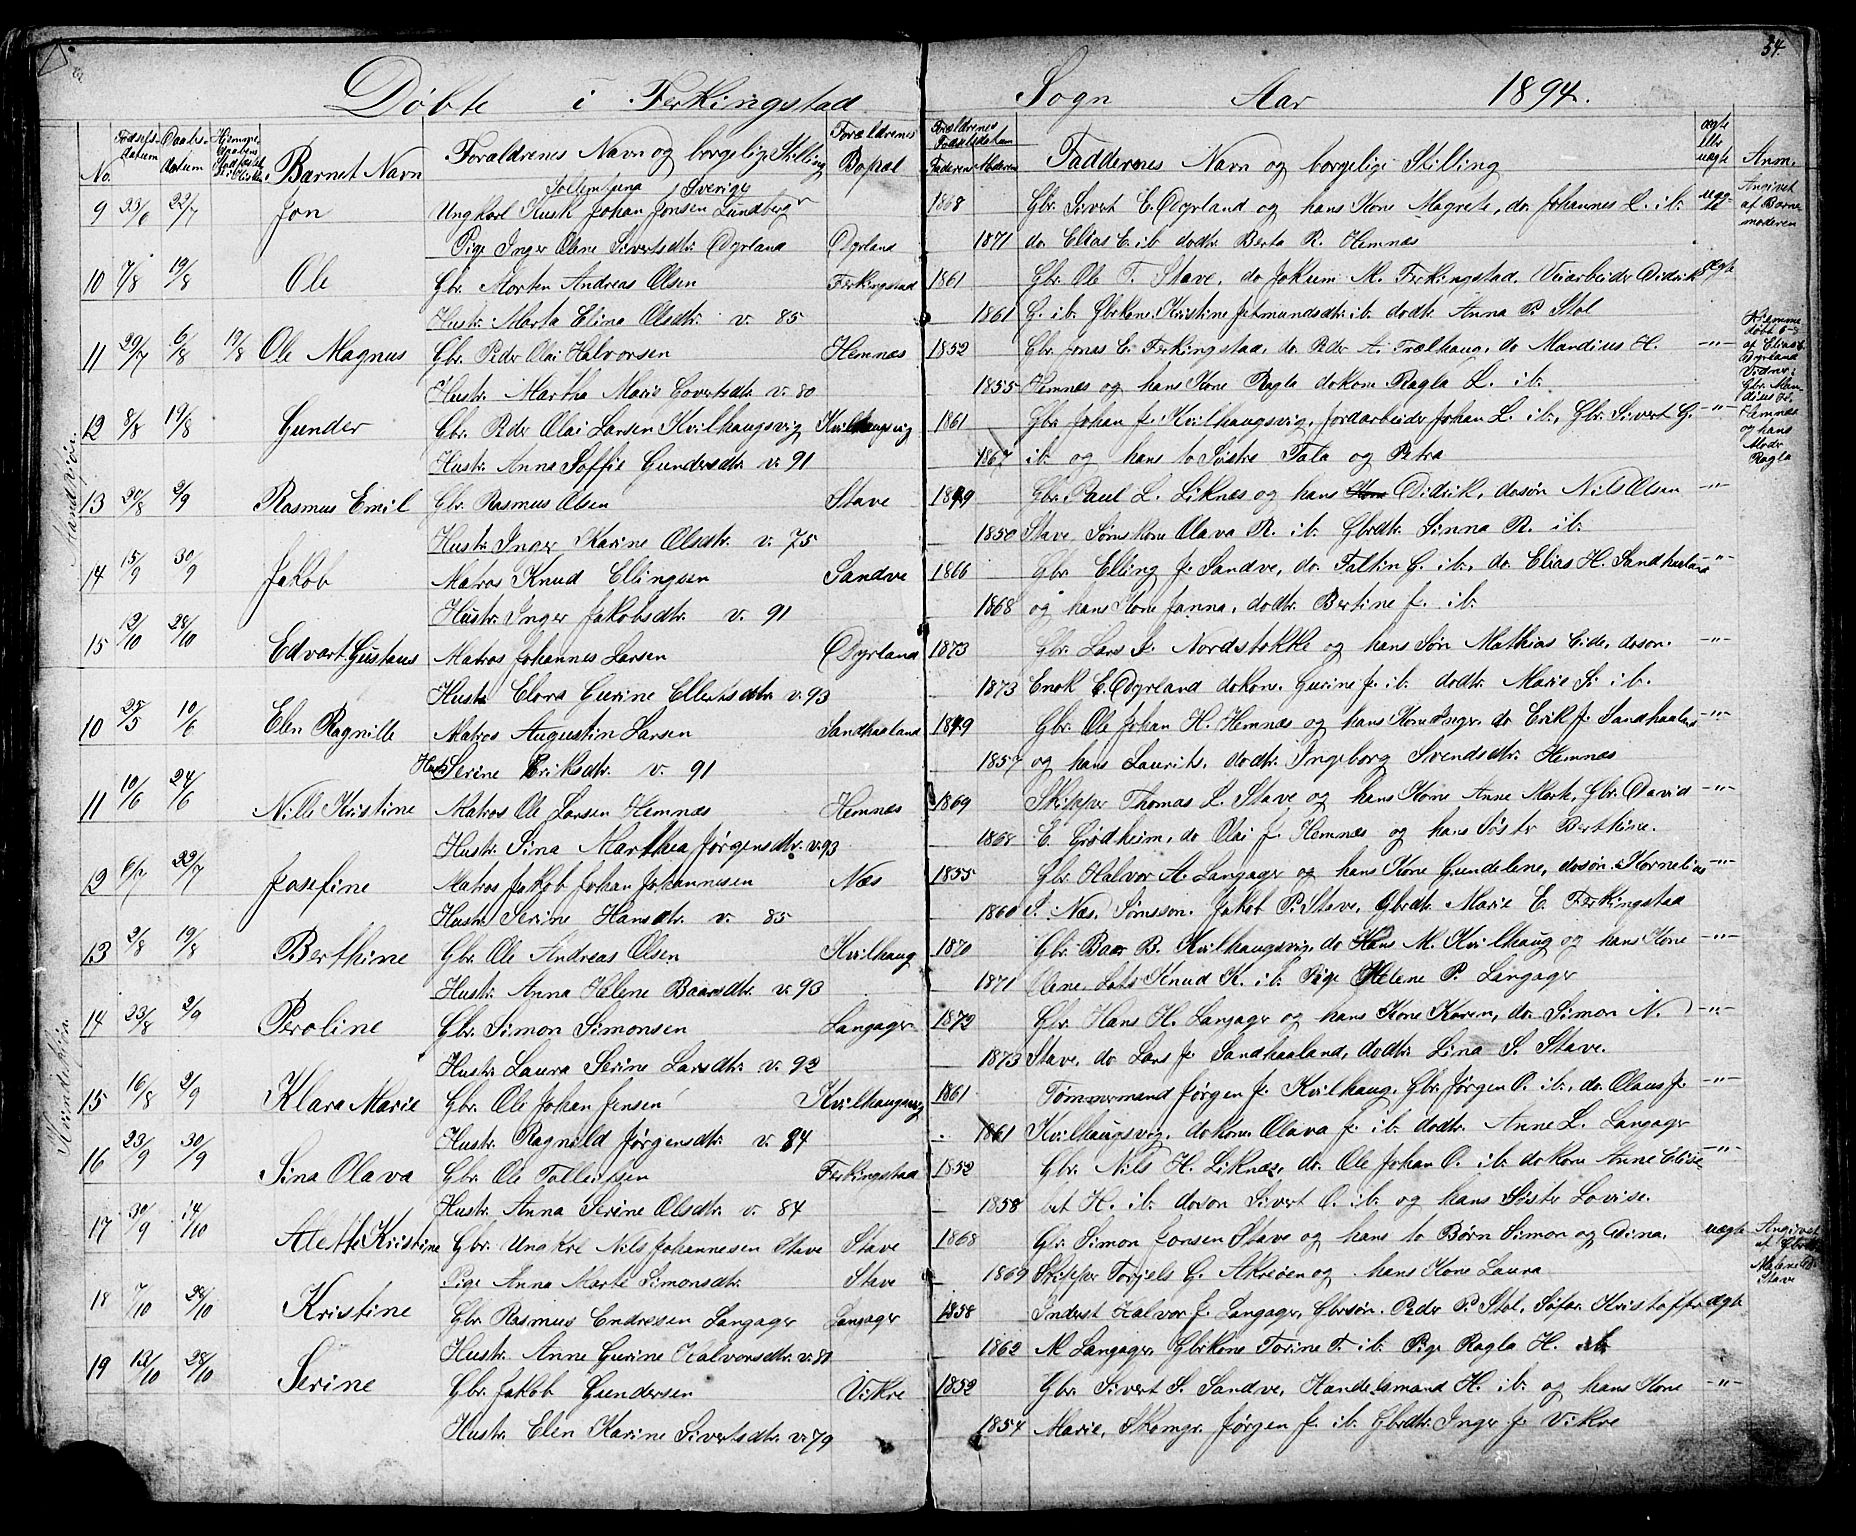 34.
Döbte i Ferkingstad Sogn Aar 1894.
No. Födsels-datum Daabs-datum Barnet Navn Forældrenes Navn og borgelige Stilling Forældrenes Bopæl Forældrenes Födselsdatum Faderen Moderen Fadderenes Navn og borgelige Stilling ægte eller uægte Anm.
Mandkjön.
Sverige
9 23/6 22/7 Jon Ungkarl Kusk Johan Jonsen Lundberg 1868 Gbr. Sivert E. Dyrland og hans Kone Magrete, do. Johannes E. ib. uægte Angivet af Barnemoderen
Pige Inger Oline Sivertsdtr. Dyrland Dyrland 1871 do. Elias E. ib. dodtr. Berta R. Hemnæs
10 7/8 19/8 Ole Gbr. Morten Andreas Olsen Ferkingstad 1861 Gbr. Ole T. Stave, do Jokum M. Ferkingstad. Veiarbeider Didrik ægte
Hustr. Marta Elina Olsdtr. v. 85 1861 G. ib. Gbrkone. Kristine Jetmundsdtr. ib. dodtr. Anna P. Stol
11 29/7 6/8 19/8 Ole Magnus Gbr. Peder Olai Halvorsen Hemnæs 1852 Gbr. Jonas E. Ferkingstad, do. Peder A. Trælhaug, do Mandius H. -"- Hjemmedöbt 6-8 af Elias E. Dyrland Vidne: Gbr. Mandius H. Hemnæs og hans Moder Ragla
Hustr. Martha Marie Govertsdtr. v. 80 1855 Hemnæs og hans Kone Ragla dokone Ragla L. ib.
12 8/8 19/8 Gunder Gbr. Peder Olai Larsen Kvilhaugsvig Kvilhaugsvig 1861 Gbr. Johan J. Kvilhaugsvig, Jordarbeider Johan L. ib., Gbr. Sivert G. -"-
Hustr. Anna Soffie Gundersdtr. v. 91 1867 ib. og hans to Søstre Tala og Petra
13 20/8 2/9 Rasmus Emil Gbr. Rasmus Olsen Stave 1849 Gbr. Paul L. Liknes og hans Didrik, dosøn Nils Olsen -"-
Hustr. Inger Karine Olsdtr. v. 75 1850 Stave Sømskone Olava R. ib. Gbrdtr. Sinna R. ib.
14 15/9 30/9 Jakob Matros Knud Ellingsen Sandve 1866 Gbr. Elling J. Sandve, do. Faltin G. ib., do Elias H. Sandhaaland -"-
Hustr. Inger Jakobsdtr. v. 91 1868 og hans Kone Janna, dodtr. Bertine J. ib.
15 12/10 28/10 Edvart Gustaus Matros Johannes Larsen Dyrland 1873 Gbr. Lars J. Nordstokke og hans Søn Mathias Eide, dosøn. -"-
Hustr. Elora Gurine Ellertsdtr. v. 93 1873 Enok E. Dyrland dokone. Gurine J. ib. dodtr. Marie S. ib.
Kvindekjön.
10 25/5 10/6 Elen Ragnille Matros Augustin Larsen Sandhaaland 1849 Gbr. Ole Johan H. Hemnæs og hans Kone Inger. do Erik J. Sandhaaland -"-
Hustr. Serine Eriksdtr. v. 91 1857 og hans Laurits, dodtr. Ingeborg Svendsdtr. Hemnæs
11 10/6 24/6 Nille Kristine Matros Ole Larsen Hemnæs Hemnæs 1869 Skipper Thomas L. Stave og hans Kone Anne Marte, Gbr. David -"-
Hustr. Sina Marthea Jørgensdtr. v. 93 1868 E. Grødheim, do Olai J. Hemnæs og hans Søster Berthine.
12 6/7 22/7 Josefine Matros Jakob Johan Johannesen Næs 1855 Gbr. Halvor A. Langager og hans Kone Gundelene, dosøn. Kornelius -"-
Hustr. Serine Hansdtr. v. 85 1860 S. Næs, Sømsson. Jakob P. Stave, Gbrdtr. Marie E. Ferkingstad
13 2/8 19/8 Berthine Gbr. Ole Andreas Olsen Kvilhaug 1870 Gbr. Baar B. Kvilhaugsvig, do Hans M. Kvilhaug og hans Kone -"-
Hustr. Anna Helene Baarsdtr. v. 93 1871 Oline Lots Knud K. ib. Pige Helene P. Langager
14 23/8 2/9 Peroline Gbr. Simon Simonsen Langager 1872 Gbr. Hans H. Langager og hans Kone Karen, do. Simon N. -"-
Hustr. Laura Serine Larsdtr. v. 92 1873 Stave, do Lars J. Sandhaaland, dodtr. Lina S. Stave.
15 16/8 2/9 Klara Marie Gbr. Ole Johan Jensen Kvilhaugsvig 1861 Tømmermand Jørgen J. Kvilhaug. Gbr. Jørgen O. ib., do. Olaus J. -"-
Hustr. Ragnild Jørgensdtr. v. 84 1861 Kvilhaugsvig, dokone Olava J. ib. dodtr. Anne L. Langager
16 23/9 30/9 Sina Olava Gbr. Ole Tolleifsen Ferkingstad 1852 Gbr. Nils H. Liknæs, do. Ole Johan O. ib. dokone Anne Elisa- -"-
Hustr. Anna Serine Olsdtr. v. 84 1858 bet H. ib. dosøn Sivert O. ib. og hans Søster Lovise.
17 30/9 14/10 Alette Kristine Gbr. Ungkrl Nils Johannesen Stave Stave 1868 Gbr. Simon Jonsen Stave og hans to Børn Simon og Dina. uægte Angivet af Malene Stave
Pige Anna Marte Simonsdtr. Stave 1869 Skipper Torjels G. Akreøen og hans Kone Laura
18 7/10 28/10 Kristine Gbr. Rasmus Endresen Langager Langager 1858 Inderst Halvor J. Langager, Gbrsøn. Peder P. Stol, Søfar. Kristoffer ægte
Hustr. Anne Gurine Halvorsdtr. v. 81 1862 M Langager, Gbrkone Torine T. ib. Pige Ragla H. ib.
19 12/10 28/10 Serine Gbr. Jakob Gundersen Vikre 1852 Gbr. Sivert S. Sandve, Handelsmand H. ib. og hans Kone -"-
Hustr. Elen Karine Sivertsdtr. v. 79 1854 Marie, Skomgr. Jørgen J. ib. Gbrdtr. Inger J. Vikre